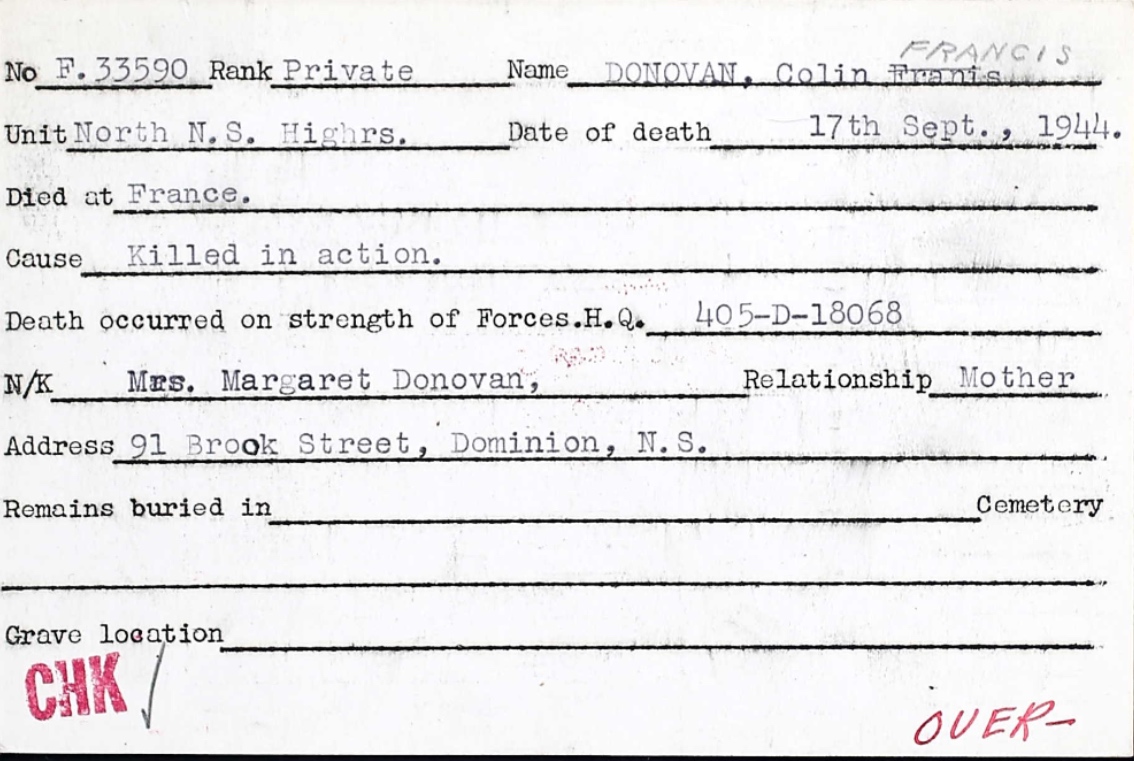 FRANCIS
No F.33590 Rank Private Name DONOVAN, Colin Franis
Unit North N.S. Highrs. Date of death 17th Sept., 1944.
Died at France.
Cause Killed in action.
Death occurred on strength of Forces.H.Q. 405-D-18068
N/K Mrs. Margaret Donovan, Relationship Mother
Address 91 Brook Street, Dominion, N.S.
Remains buried in Cemetery
Grave location
CHK
OVER-